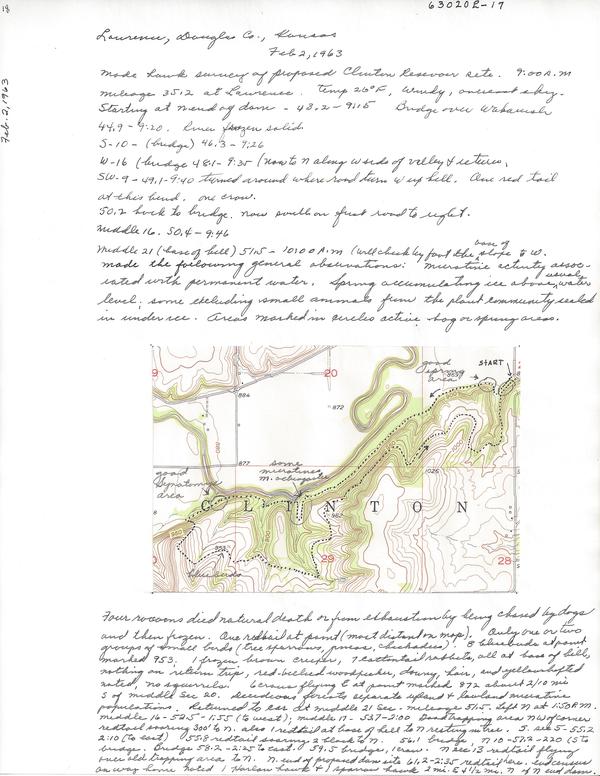 18
63020R-17
Feb. 2, 1963
Lawrence, Douglas Co., Kansas
Feb 2, 1963
Made hawk survey of proposed Clinton Reservoir site. 9:00 A.M
mileage 3512 at Lawrence. Temp 26°F, Windy, overcast sky.
Starting at N end of dam - 43.2 - 9:15 Bridge over Wakarusa
44.9 - 9:20. River frozen solid
S-10 - (bridge) 46.3 - 9:26
W-16 (bridge 48.1 - 9:35 (now to N along woods of valley & return,
SW-9 - 49.1 - 9:40 turned around where road turn W up hill. One red tail
at this bend. one crow.
50.2 back to bridge. now south on first road to right.
Middle 16. 50.4 - 9:46
Middle 21 (base of hill) 51.5 - 10:00 A.M (will check by foot the base of slope to W.
made the following general observations: Microtine activity assoc-
iated with permanent water. Spring accumulating ice above usual water
level; some excluding small animals from the plant community sealed
in under ice. Areas marked in circles active bog or spring areas.
good spring area
START
9
20
884
872
877
good Synaptomys area
some microtines M. ochrogaster
1025
CLINTON
953
bluebirds
29
28
Four racoons died natural death or from exhaustion by being chased by dogs
and then frozen. One redtail at point (most distant on map). Only one or two
groups of small birds (tree sparrows, juncos, chickadees). 8 bluebirds at point
marked 953. 1 frozen brown creeper, 7 cottontail rabbits, all at base of hill,
nothing on return trip, red-bellied woodpecker, downy, hair, and yellowshafted
noted, no squirrels. 2 crows flying E at point marked 872 about 2/10 mi
S of middle Sec 20. deciduous forests separate upland & lowland microtine
populations. Returned to car at middle 21 Sec. - mileage 51.5. Left N at 1:50 P.M.
middle 16 - 52.5 - 1:55 (to west); middle 17 - 53.7 - 2:00 Good trapping area NW of corner
redtail soaring 300' to N. also 1 redtail at base of hell to N resting in tree. S. sec 5 - 55.2
2:10 (to east) 55.8 redtail soaring 2 blocks to N. 56.1 bridge, N 10 - 57.2 - 2:20 (S to
bridge. Bridge 58.2 - 2:25 to east. 59.5 bridge, 1 crow. N sec 13 redtail flying
over old trapping area to N. N. end of proposed dam site 61.2 - 2:35 redtail here. end census
on way home noted 1 harlan hawk & 1 sparrow hawk 2 mi. E 4 1/2 mi. N. of N end dam.